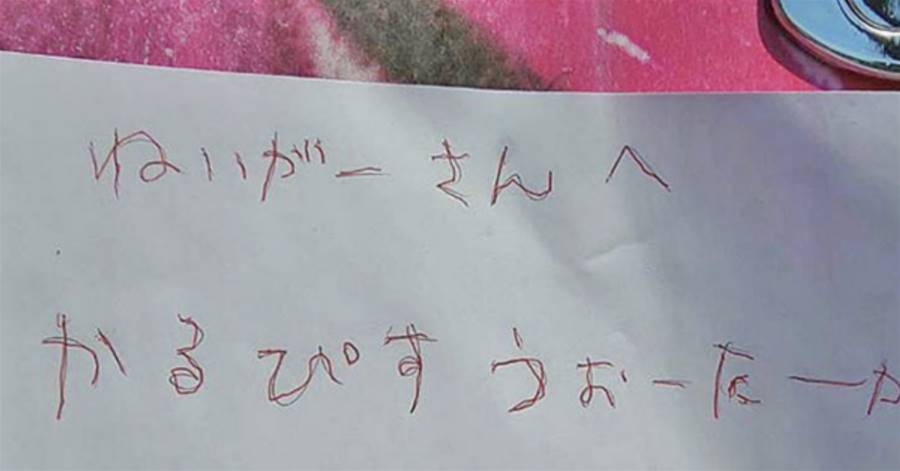 ねいがーさんへ
かるぴすうぉーたーか